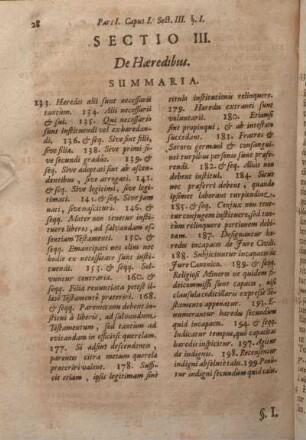 28
Pars I. Caput I. Sect. III. §. I.
SECTIO III.
De Hæredibus.
SUMMARIA.
133. Hæredes alii sunt necessarii
tantùm. 134. Alii necessarii
& sui. 135. Qui necessariò
sunt instituendi vel exhæredan-
di. 136. & seq. Sive sint filii,
sive filiæ. 138. Sive primi si-
ve secundi gradûs. 139. &
seq. Sive adoptati sint ab ascen-
dentibus, sive arrogati. 141.
& seqq. Sive legitimi, sive legi-
timati. 141. & seq. Sive jam
nati, sive nascituri. 146. &
seqq. Mater non tenetur insti-
tuere liberos, ad salvandam es-
sentiam Testamenti. 150. &
seqq. Emancipati vel alio mo-
do ex necessitate sunt institu-
endi. 155. & seq. Sol-
vuntur contraria. 160. &
seqq. Filia renuntiata potest il-
læso Testamento præteriri. 168.
& seqq. Parentes non debent in-
stitui à liberis, ad salvandum
Testamentum, sed tantùm ad
evitandam in efficaci querelam.
177. Si adsint descendentes,
parentes citra metum querelæ
præteriri valent. 178. Suffi-
cit etiam, ipsis legitimam sine
titulo institutionis relinquere.
179. Hæredes extranei sunt
voluntarii. 180. Etiamsi
sint propinqui, & ab intestato
succedant. 181. Fratres &
Sorores germani & consangui-
nei turpibus personis sunt præfe-
rendi. 182. & seq. Alias non
debent institui. 184. Sicut
nec præferri debent, quando
ipsimet laborant turpitudine.
185. & seq. Conjux non tene-
tur conjugem instituere, sed tan-
tùm relinquere portionem debi-
tam. 187. Disquiruntur hæ-
redes incapaces de Jure Civili.
188. Subjiciuntur incapaces de
Jure Canonico. 189. & seq.
Religiosi Minores ne quidem fi-
deicommissi sunt capaces, nisi
clausula codicillaris expressè sit
testamento apposita. 191. E-
numerantur hæredes secundùm
quid incapaces. 194. & seq.
Indicatur tempus, quo capacitas
hæredis inspicitur. 197. Agitur
de indignis. 198. Recensentur
indigni absolutè tales. 199. Poni-
tur indigni secundùm quid tales.
§. I.